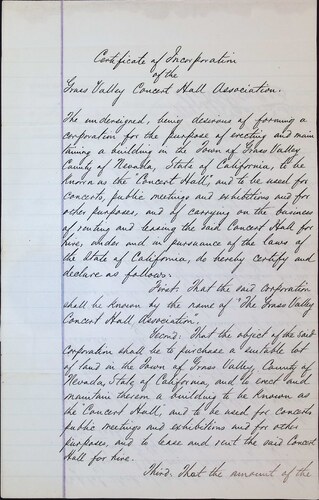 Certificate of Incorporation
of the
Grass Valley Concert Hall Association.
The undersigned, being desirous of forming a
corporation for the purpose of erecting and main
taining a building in the Town of Grass Valley
County of Nevada, State of California, to be
known as the "Concert Hall", and to be used for
concerts, public meetings and exhibitions and for
other purposes, and of carrying on the business
of renting and leasing the said Concert Hall for
hire, under and in pursuance of the laws of
the State of California, do hereby certify and
declare as follows:
First: That the said corporation
shall be known by the name of "The Grass Valley
Concert Hall Association".
Second: That the object of the said
corporation shall be to purchase a suitable lot
of land in the Town of Grass Valley, County of
Nevada, State of California, and to erect and
maintain thereon a building to be known as
the "Concert Hall", and to be used for concerts
public meetings and exhibitions and for other
purposes, and to lease and rent the said Concert
Hall for hire.
Third. That the amount of the